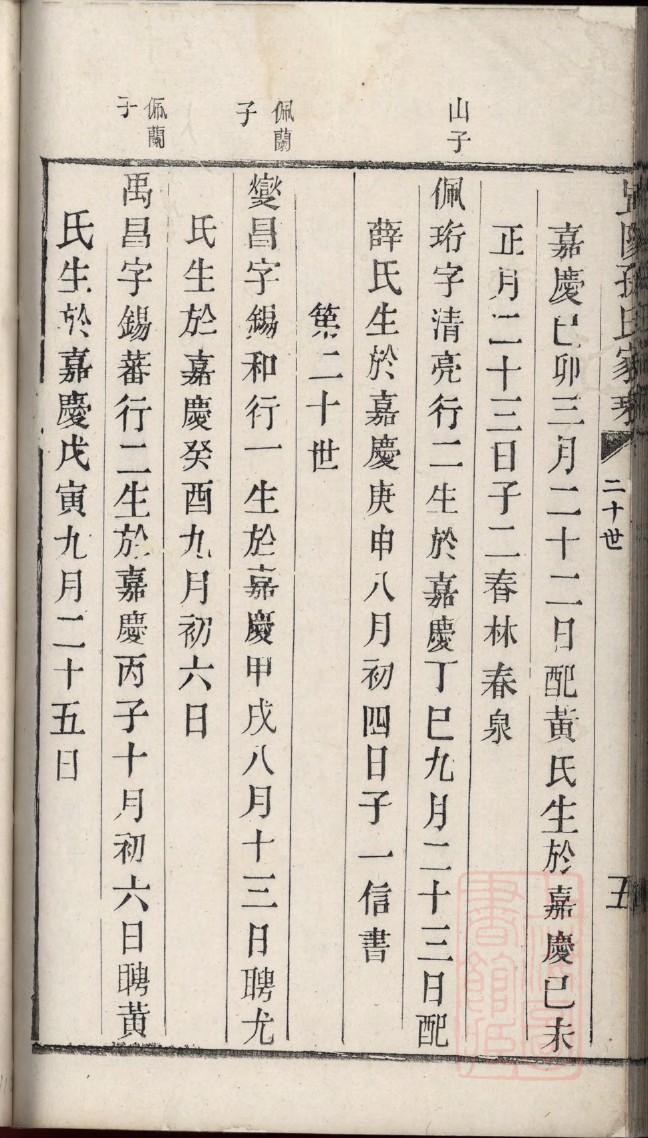 孫氏家
二十世
五
嘉慶己卯三月二十二日配黃氏生於嘉慶己未
正月二十三日子二春林春泉
山子
佩珩字清亮行二生於嘉慶丁巳九月二十三日配
薛氏生於嘉慶庚申八月初四日子一信書
第二十世
佩蘭
子
燮昌字錫和行一生於嘉慶甲戌八月十三日聘尤
氏生於嘉慶癸酉九月初六日
佩蘭
子
禹昌字錫蕃行二生於嘉慶丙子十月初六日聘黃
氏生於嘉慶戊寅九月二十五日